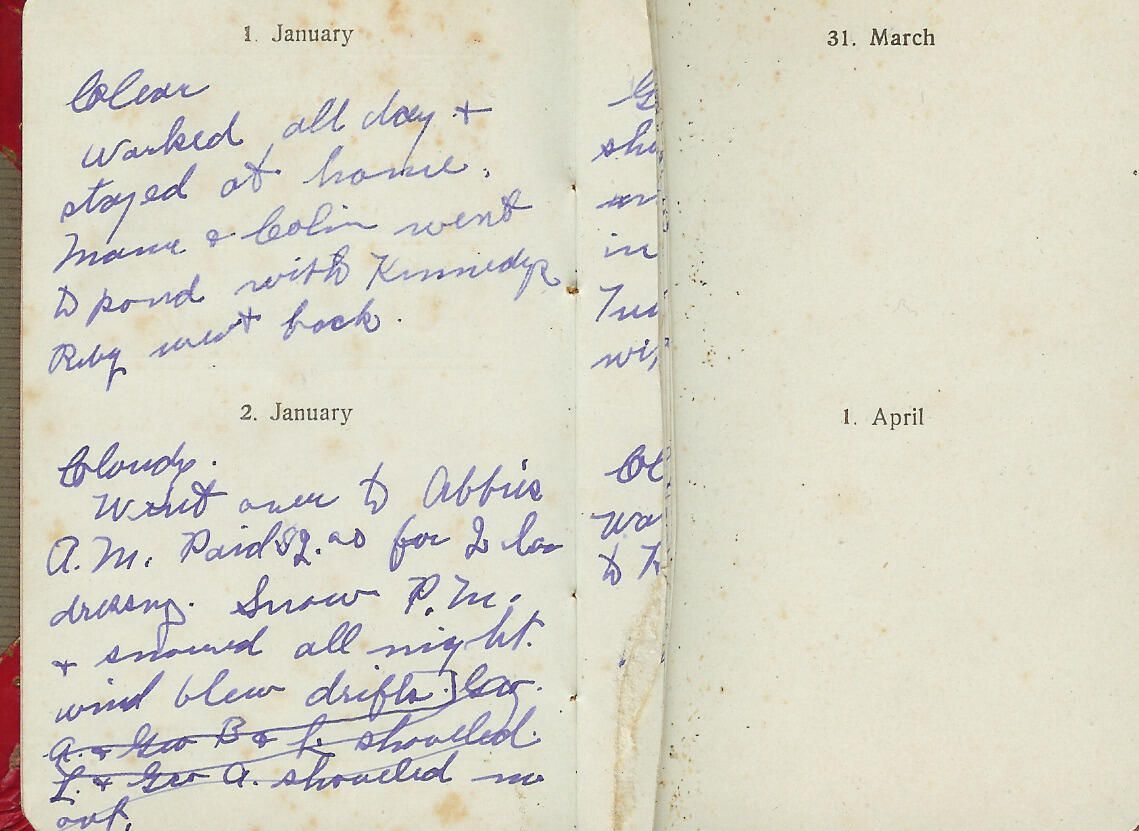 1. January
Clear
Worked all day +
stayed at home.
Marie + Colin went
to pond with Kennedys
Roy went back.
2. January
Cloudy.
Went over to Abbies
A.M. Paid $2.00 for 2
dressing. Snow P.M.
+ snowed all night.
wind blew drifts.] Geo.
A. + Geo B + L. shoveled.
L. + Geo A. shoveled me
out.
sho
in
to
31. March
1. April